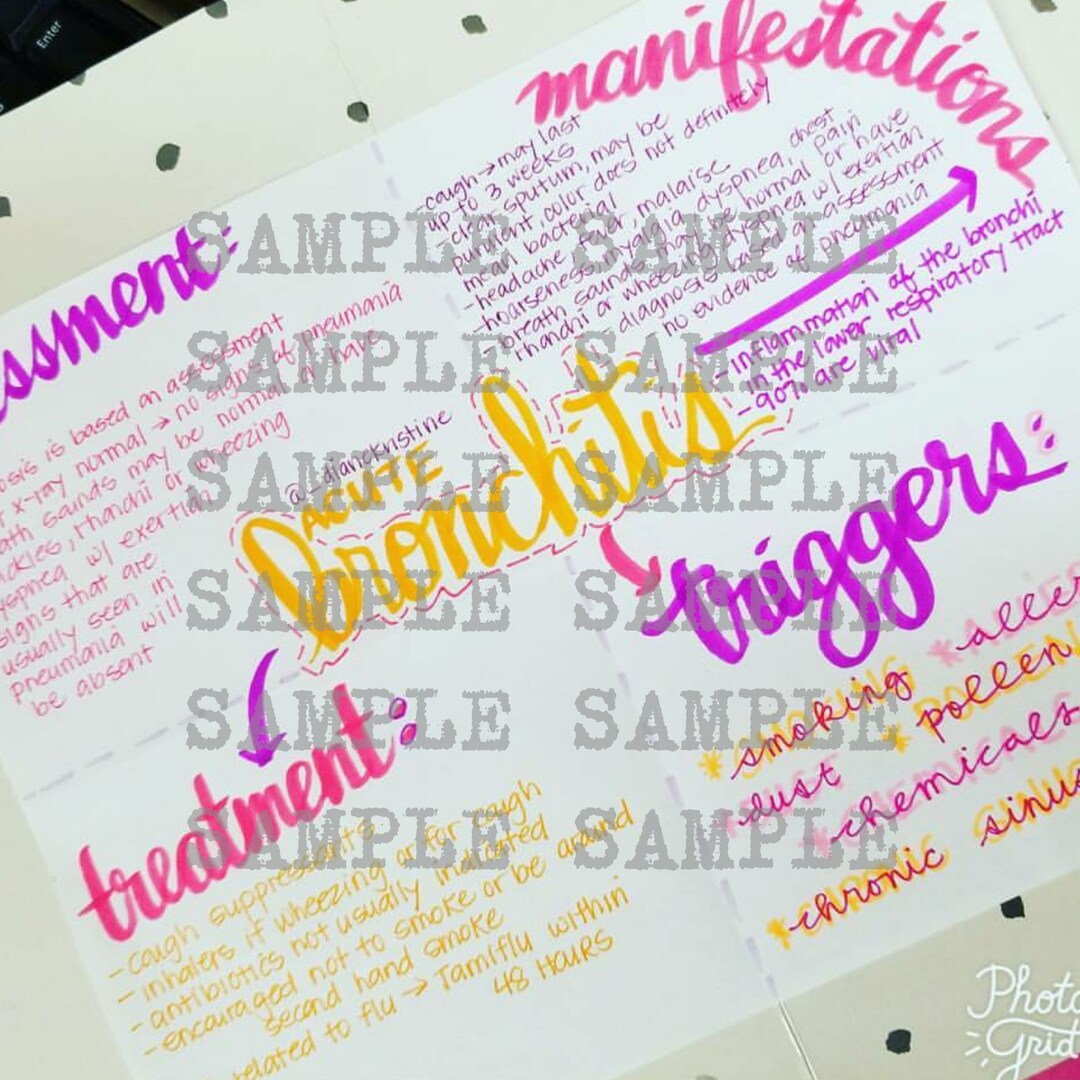 Enter
manifestations
-cough → may last
up to 3 weeks
-clear sputum, may be
purulent color does not definitely
mean bacterial
-headache, fever, malaise
-hoarseness, myalgia, dyspnea, chest pain
-breath sounds may be normal or have
rhonchi or wheezing, dyspnea w/ exertion
-diagnosis based on assessment
no evidence of pneumonia
-inflammation of the bronchi
in the lower respiratory tract
-90% are viral
ssment:
osis is based on assessment
x-ray normal → no signs of pneumonia
ath sounds may be normal or have
ckles, rhonchi or wheezing
yspnea w/ exertion
signs that are
usually seen in
pneumonia will
be absent
@rdianekristine
ACUTE
bronchitis
triggers:
*smoking *aller
*pollen
*dust
*chemicals
*chronic sinus
treatment:
-cough suppressants
-inhalers if wheezing or for cough
-antibiotics not usually indicated
-encouraged not to smoke or be around
second hand smoke
related to flu → Tamiflu within
48 HOURS
SAMPLE SAMPLE
SAMPLE SAMPLE
SAMPLE SAMPLE
SAMPLE SAMPLE
SAMPLE SAMPLE
SAMPLE SAMPLE
Photo
Grid